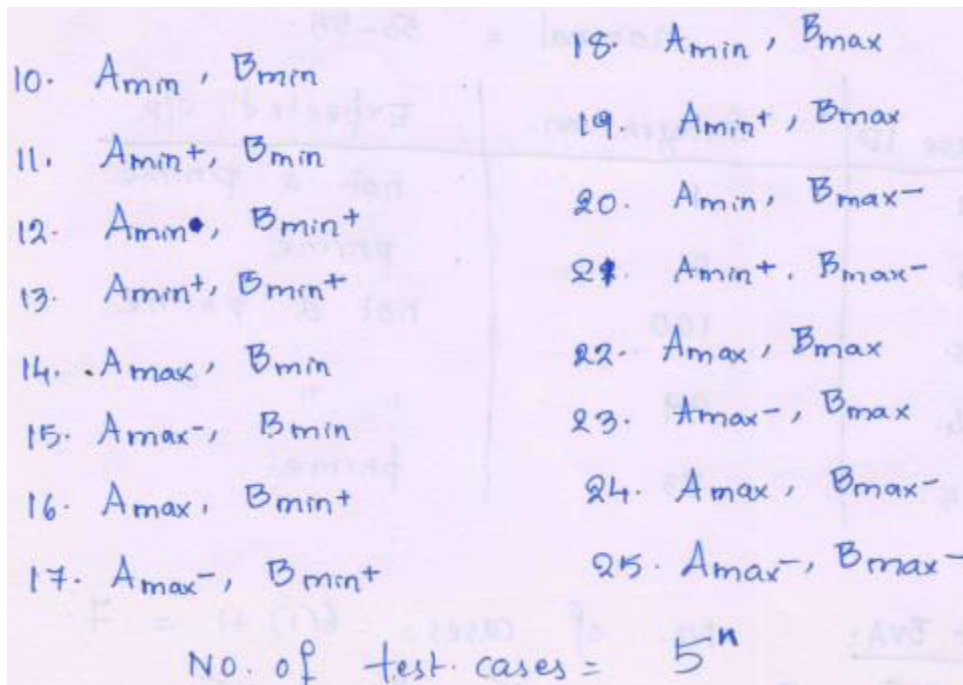 10. Amin, Bmin
11. Amin+, Bmin
12. Amin, Bmin+
13. Amin+, Bmin+
14. Amax, Bmin
15. Amax-, Bmin
16. Amax, Bmin+
17. Amax-, Bmin+
18. Amin, Bmax
19. Amin+, Bmax
20. Amin, Bmax-
21. Amin+. Bmax-
22. Amax, Bmax
23. Amax-, Bmax
24. Amax, Bmax-
25. Amax-, Bmax-
No. of test. cases = 5ⁿ